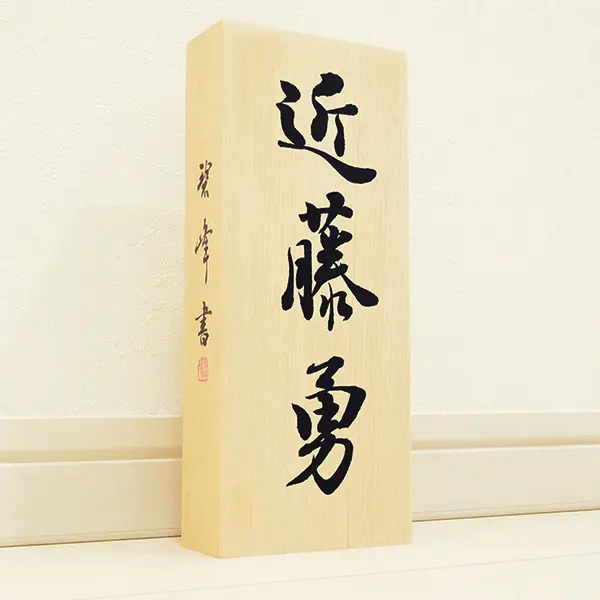 近藤勇
碧峰書